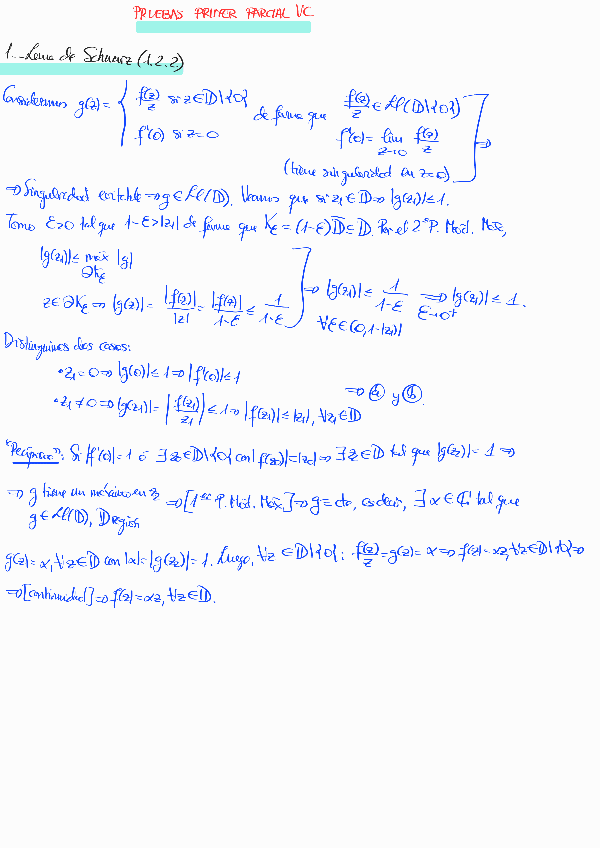 PRUEBAS PRIMER PARCIAL VC
1.- Lema de Schwarz (1.2.2)
Consideremos g(z) = { f(z)/z si z∈𝔻\{0} ; f'(0) si z=0 de forma que f(z)/z ∈ ℋ(𝔻\{0}) ; f'(0) = lim_{z→0} f(z)/z (tiene singularidad en z=0) ] ⇒
⇒ Singularidad evitable ⇒ g∈ℋ(𝔻). Veamos que si z₁∈𝔻 ⇒ |g(z₁)| ≤ 1.
Tomo ε>0 tal que 1-ε>|z₁| de forma que K_ε = (1-ε)𝔻̄ ⊆ 𝔻. Por el 2º P. Mód. Máx,
|g(z₁)| ≤ máx_{∂K_ε} |g|
z∈∂K_ε ⇒ |g(z)| = |f(z)|/|z| = |f(z)|/(1-ε) ≤ 1/(1-ε) ] ⇒ |g(z₁)| ≤ 1/(1-ε) ∀ε∈(0,1-|z₁|) ⇒_{ε→0⁺} |g(z₁)| ≤ 1.
Distinguimos dos casos:
• z₁ = 0 ⇒ |g(0)| ≤ 1 ⇒ |f'(0)| ≤ 1
• z₁ ≠ 0 ⇒ |g(z₁)| = |f(z₁)/z₁| ≤ 1 ⇒ |f(z₁)| ≤ |z₁|, ∀z₁∈𝔻 ⇒ ⓐ y ⓑ.
"Recíproco": Si |f'(0)| = 1 ó ∃z₀∈𝔻\{0} con |f(z₀)| = |z₀| ⇒ ∃z₂∈𝔻 tal que |g(z₂)| = 1 ⇒
⇒ g tiene un máximo en z₂
g∈ℋ(𝔻), 𝔻 región ⇒ [1er P. Mód. Máx.] ⇒ g = cte, es decir, ∃α∈ℂ tal que
g(z) = α, ∀z∈𝔻 con |α| = |g(z₂)| = 1. Luego, ∀z∈𝔻\{0}: f(z)/z = g(z) = α ⇒ f(z) = αz, ∀z∈𝔻\{0} ⇒
⇒ [continuidad] ⇒ f(z) = αz, ∀z∈𝔻.